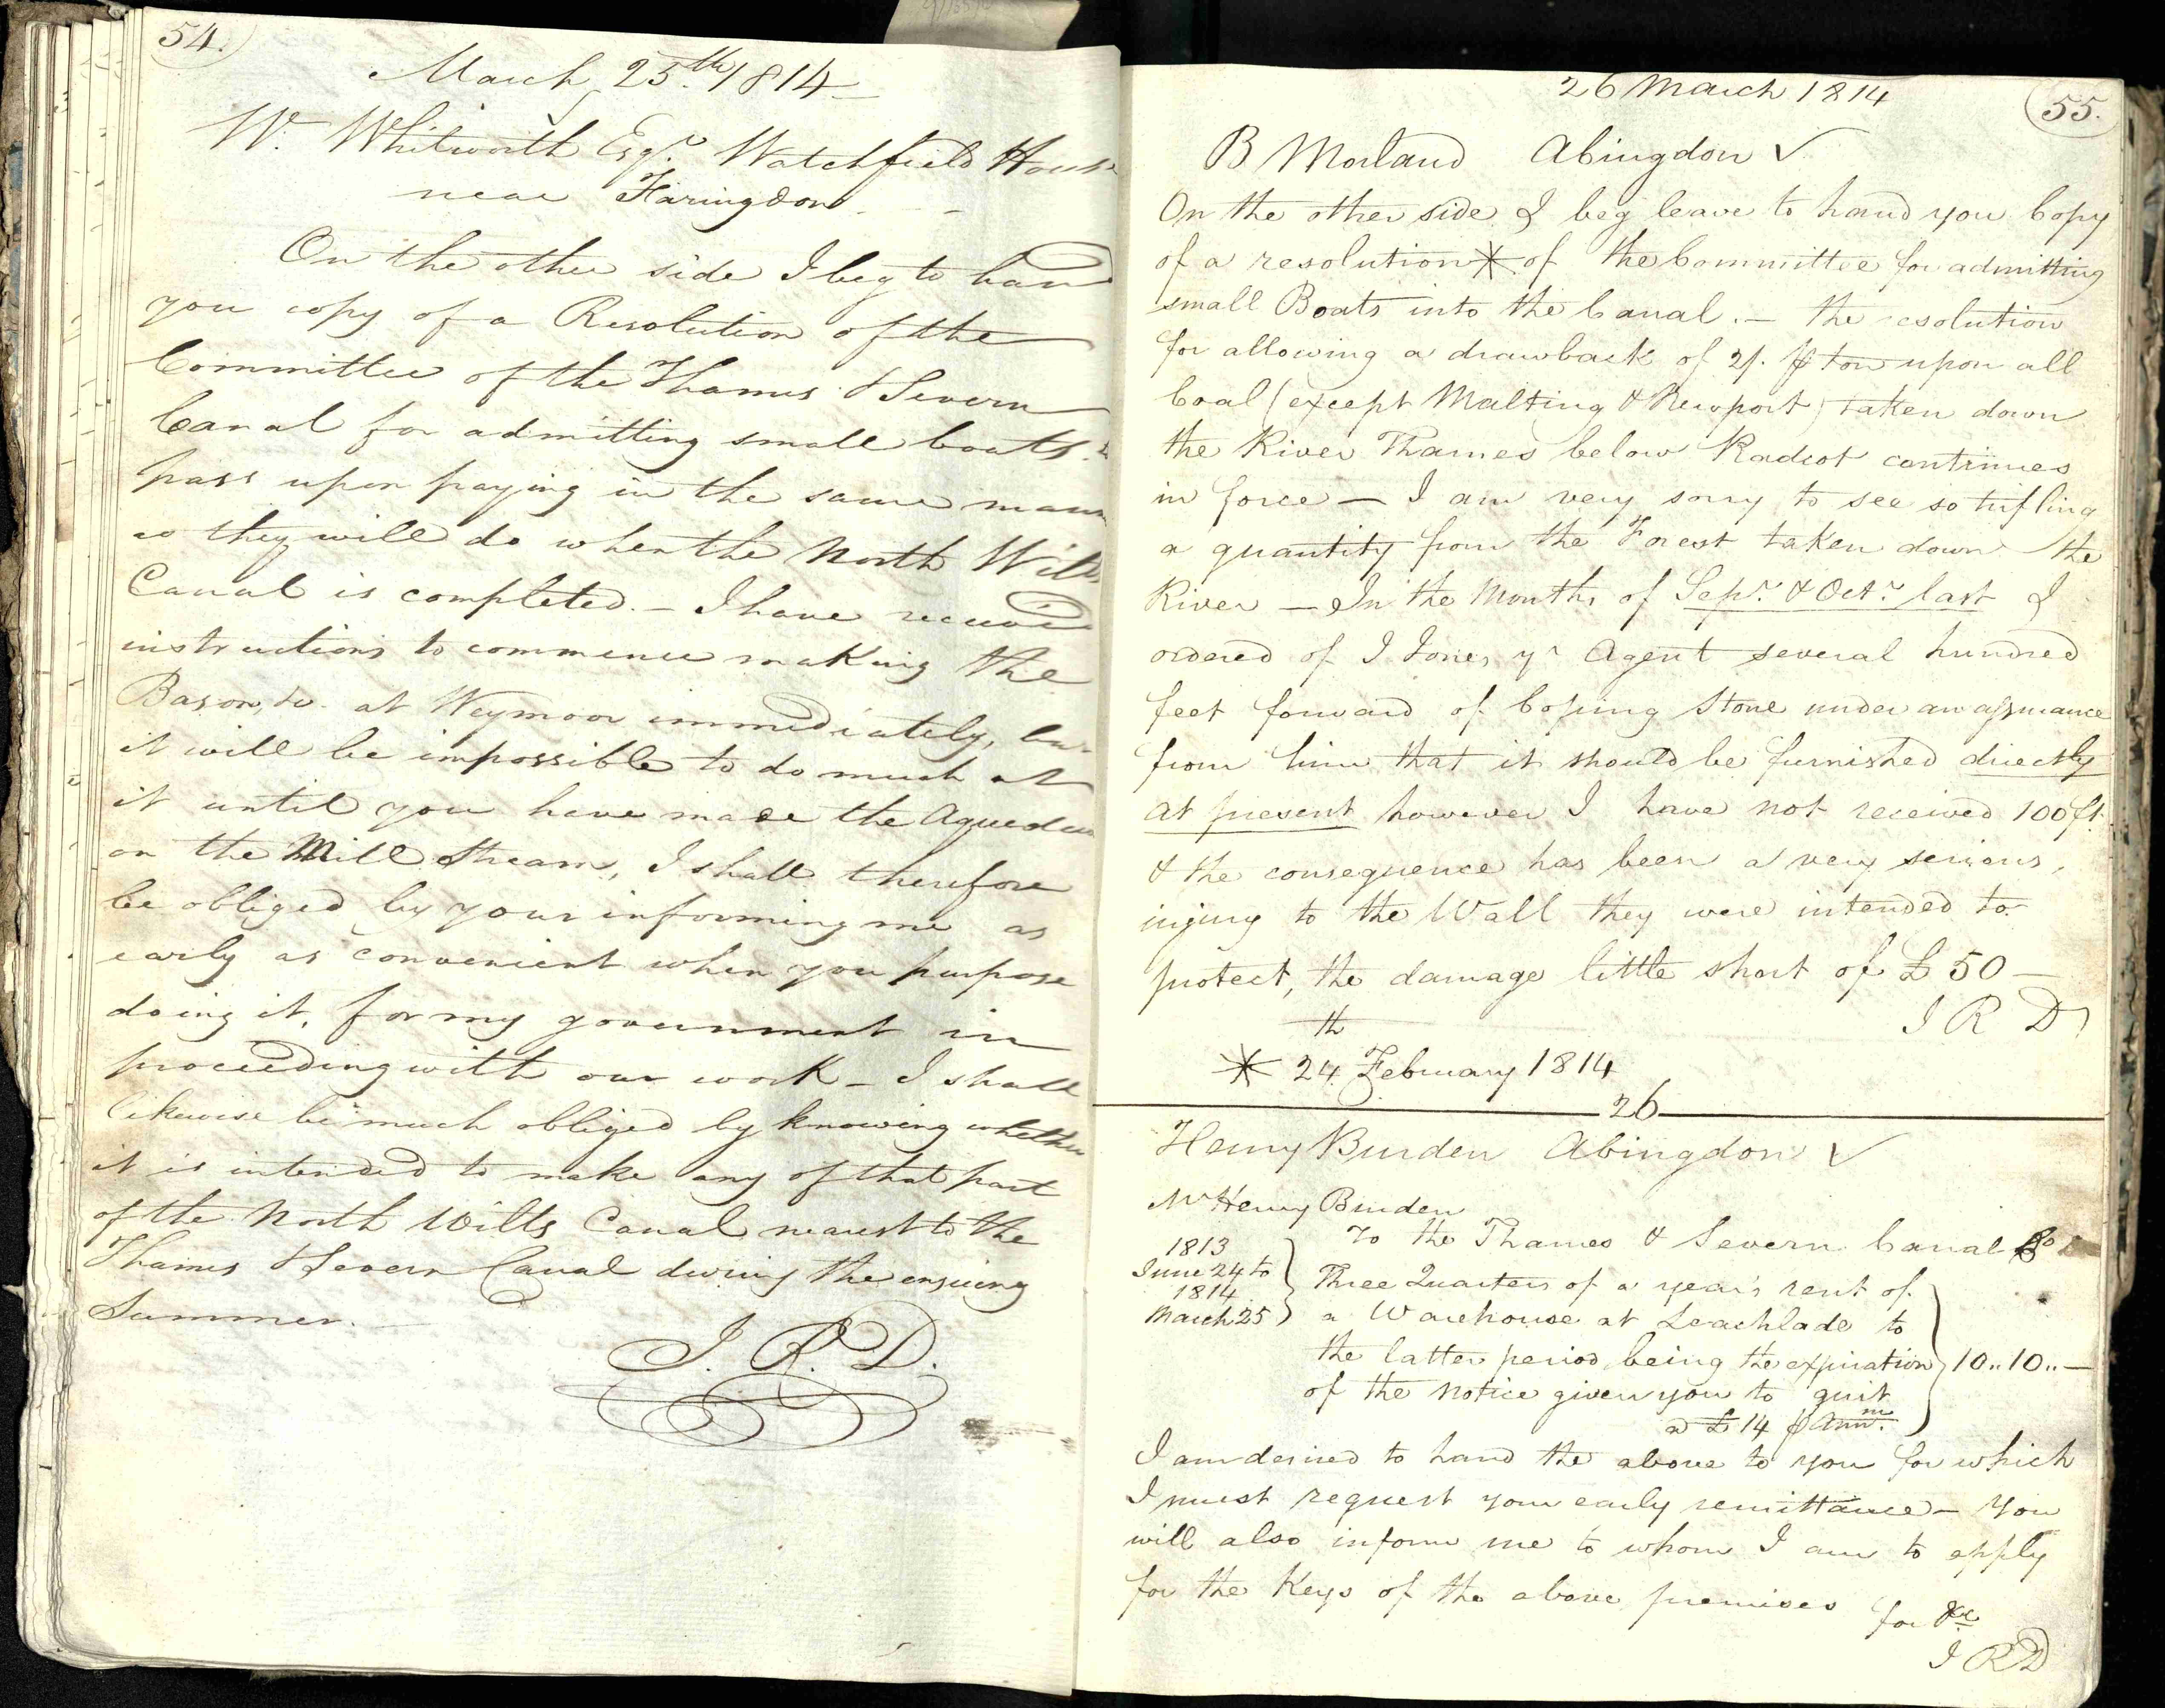 54.
March 25th. 1814
Wm. Whitworth Esqr. Watchfield House
near Faringdon
On the other side I beg to hand
you copy of a Resolution of the
Committee of the Thames & Severn
Canal for admitting small boats to
pass upon paying in the same mann
as they will do when the North Wilts
Canal is completed. – I have received
instructions to commence making the
Bason, &c. at Weymoor immediately, but
it will be impossible to do much at
it until you have made the Aqueduct
on the Mill Stream, I shall therefore
be obliged by your informing me as
early as convenient when you purpose
doing it, for my government in
proceeding with our work – I shall
likewise be much obliged by knowing whether
it is intended to make any of that part
of the North Wilts Canal nearest to the
Thames & Severn Canal during the ensuing
Summer. –
J. R. D.
26 March 1814
55.
B Morland Abingdon ✓
On the other side I beg leave to hand you Copy
of a resolution * of the Committee for admitting
small Boats into the Canal. – the resolution
for allowing a drawback of 2/. ⅌ ton upon all
Coal (except Malting & Newport) taken down
the River Thames below Radcot continues
in force – I am very sorry to see so trifling
a quantity from the Forest taken down the
River – In the Months of Sepr. & Octr. last I
ordered of J Jones yr Agent several hundred
feet forward of Coping Stone under an assurance
from him that it should be furnished directly
at present however I have not received 100 ft.
& the consequence has been a very serious
injury to the Wall they were intended to
protect, the damage little short of £50 –
J R D
* 24th February 1814
26
Henry Burden Abingdon ✓
Mr Henry Burden
To the Thames & Severn Canal Co
1813
June 24 to
1814
March 25
Three Quarters of a year's rent of
a Warehouse at Leachlade to
the latter period, being the expiration 10..10..–
of the notice given you to quit
a £14 ⅌ Annm.
I am desired to hand the above to you for which
I must request your early remittance – You
will also inform me to whom I am to apply
for the Keys of the above premises
for &c
J R D